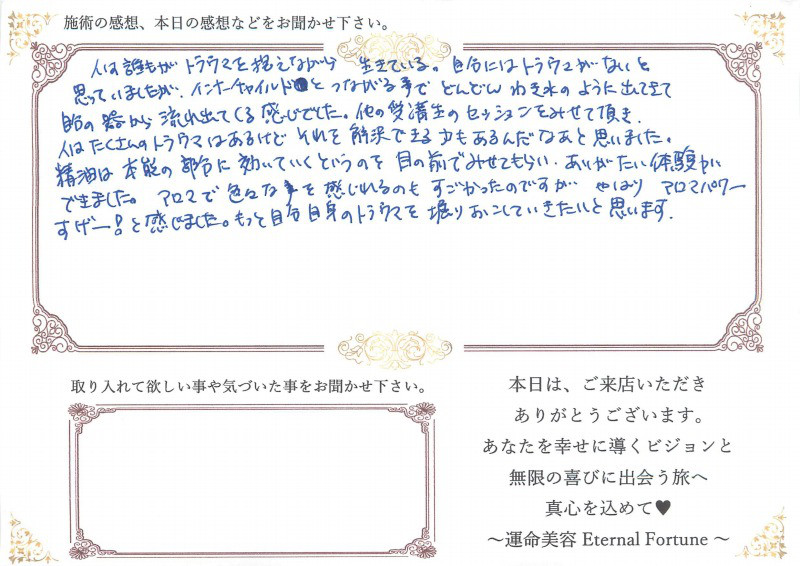 施術の感想、本日の感想などをお聞かせ下さい。
人は誰もがトラウマを抱えながら 生きている。自分にはトラウマがないと
思っていましたが、インナーチャイルドとつながる事で どんどん わき水のように出て来て
自分の器から流れ出てくる感じでした。他の受講生のセッションをみせて頂き、
人はたくさんのトラウマはあるけど それを解決できる力もあるんだなあと思いました。
精油は本能の部分に効いていくというのを目の前でみせてもらい、ありがたい体験が
できました。アロマで色々な事を感じれるのもすごかったのですが やはり アロマパワー
すげー!と感じました。もっと自分自身のトラウマを掘りおこしていきたいと思います。
取り入れて欲しい事や気づいた事をお聞かせ下さい。
本日は、ご来店いただき
ありがとうございます。
あなたを幸せに導くビジョンと
無限の喜びに出会う旅へ
真心を込めて♥
〜運命美容 Eternal Fortune 〜